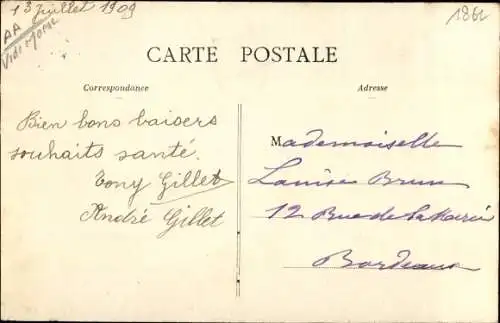 13 juillet 1909
AA
1861
CARTE POSTALE
Correspondance
Adresse
Bien bons baisers
souhaits santé.
Tony Gillet
André Gillet
Mademoiselle
Louise Brun
12 Rue de
Bordeaux